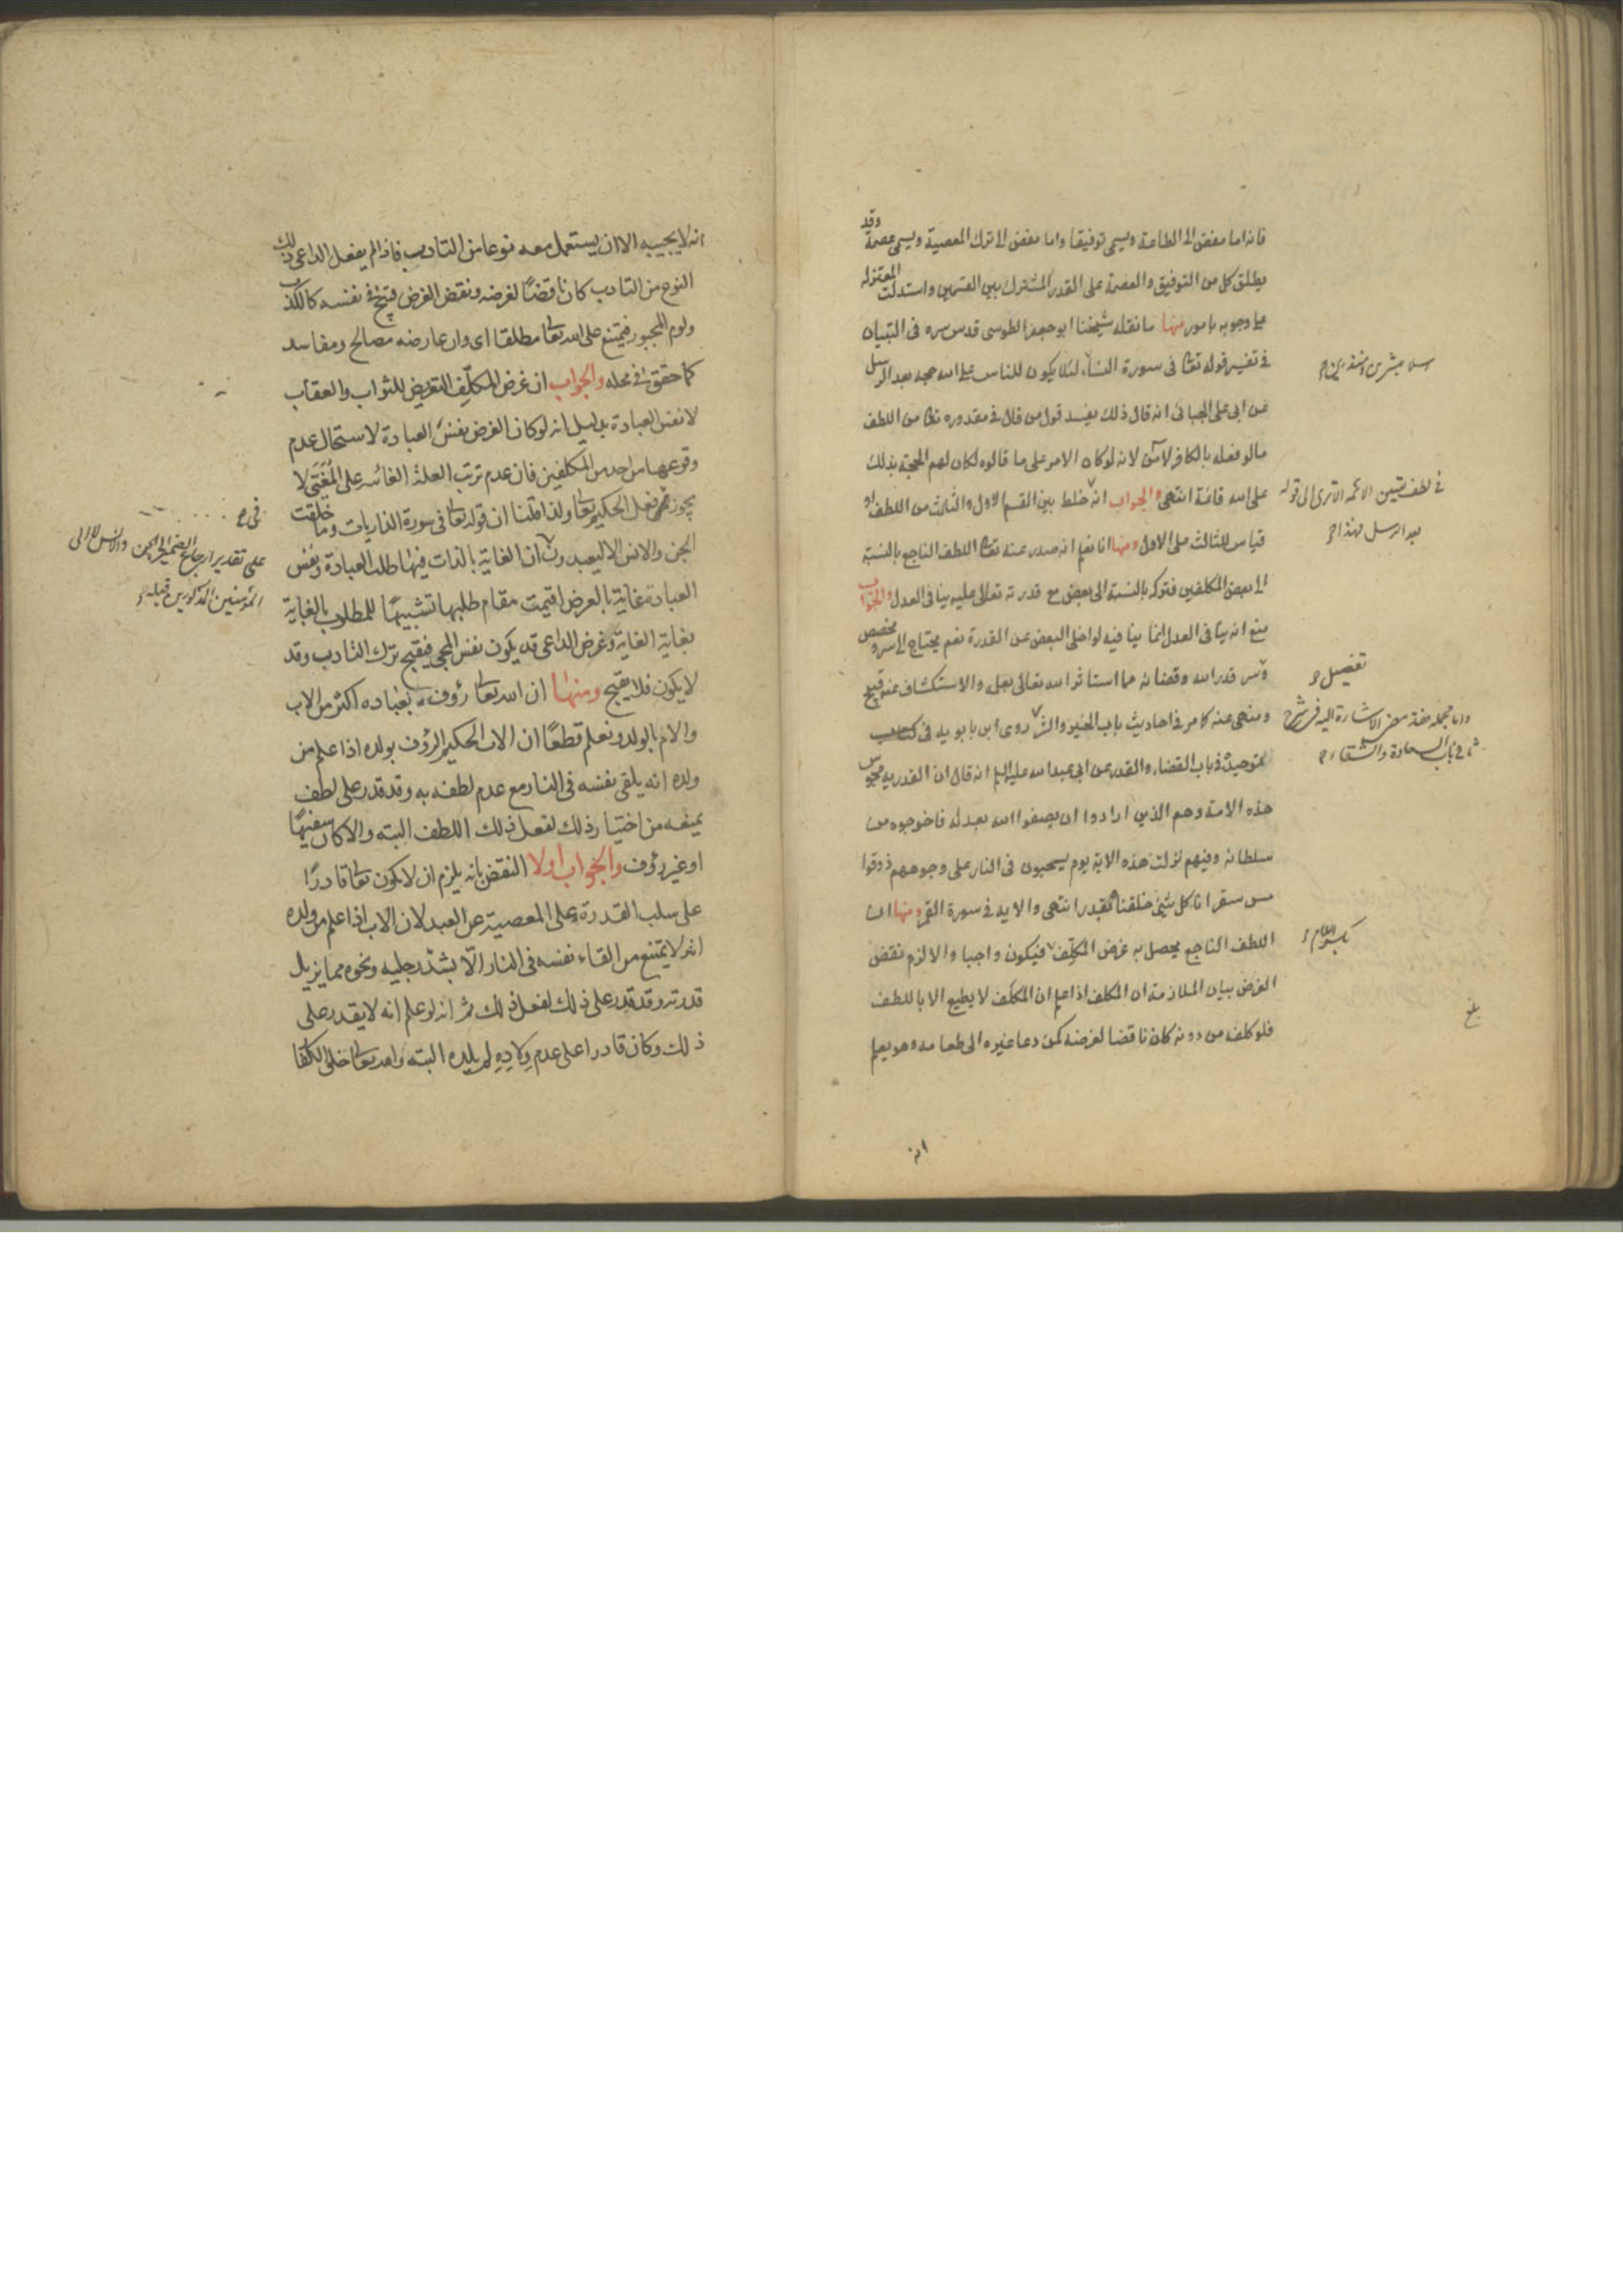 فانه اما مفض الى الطاعة ويسمى توفيقا واما مفض الى ترك المعصية ويسمى عصمة وقد
يطلق كل من التوفيق والعصمة على القدر المشترك بين القسمين واستدلت المعتزله
على وجوبه بامور منها ما نقله شيخنا ابو جعفر الطوسى قدس سره فى التبيان
فى تفسير قوله تعا فى سورة النساء لئلا يكون للناس على الله حجة بعد الرسل
عن ابى على الجبائى انه قال ذلك يفسد قول من قال فى مقدوره تعا من اللطف
ما لو فعله بالكافر لآمن لانه لو كان الامر على ما قالوه لكان لهم الحجة بذلك
على الله قائمة انتهى والجواب انه خلط بين القسم الاول والثالث من اللطف او
قياس للثالث على الاول ومنها انا نعلم انه صدر عنه تعا اللطف الناجع بالنسبة
الى بعض المكلفين فتركه بالنسبة الى بعض مع قدرته تعالى عليه ينافى العدل والجواب
منع انه ينافى العدل انما ينافيه لو اخلى البعض عن القدرة نعم يحتاج الى سر ومخصص
وسر قدر الله وقضائه مما استأثر الله تعالى بعلمه والاستكشاف عنه قبيح
ومنهى عنه كما مر فى احاديث باب الخير والشر روى ابن بابويه فى كتاب
توحيده فى باب القضاء والقدر عن ابى عبد الله عليه السلم انه قال ان القدريه مجوس
هذه الامة وهم الذين ارادوا ان يصفوا الله بعدله فاخرجوه من
سلطانه وفيهم نزلت هذه الاية يوم يسحبون فى النار على وجوههم ذوقوا
مس سقر انا كل شئ خلقناه بقدر انتهى والاية فى سورة القمر ومنها ان
اللطف الناجع يحصل به غرض المكلف فيكون واجبا والا لزم نقض
الغرض بيان الملازمة ان المكلف اذا علم ان المكلف لا يطيع الا باللطف
فلو كلفه من دونه كان ناقضا لغرضه كمن دعا غيره الى طعامه وهو يعلم
انه
رسلا مبشرين ومنذرين
بعد الرسل
تفصيل
فى باب السعادة والشقاء
بكسر اللام
بلغ
انه لا يجيبه الا ان يستعمل معه نوعا من التادب فاذا لم يفعل الداعى ذلك
النوع من التادب كان ناقضا لغرضه ونقض الغرض قبيح فى نفسه كالكذب
ولوم المجبور فيمتنع على الله تعا مطلقا اى وان عارضه مصالح ومفاسد
كما حقق فى محله والجواب ان غرض المكلف التعريض للثواب والعقاب
لا نفس العبادة بدليل انه لو كان الغرض نفس العبادة لاستحال عدم
وقوعها من احد من المكلفين فان عدم ترتب العلة الغائية على المغيى لا
يجوز فى فعل الحكيم تعا ولذا قلنا ان قوله تعا فى سورة الذاريات وما خلقت
الجن والانس الا ليعبدون ان الغاية بالذات فيها طلب العبادة ونفس
العبادة غاية بالعرض اقيمت مقام طلبها تشبيها للمطلوب بالغاية
بغاية الغاية وغرض الداعى قد يكون نفس المجئ فيقبح ترك التادب وقد
لا يكون فلا يقبح ومنها ان الله تعا رؤوف بعباده اكثر من الاب
والام بالولد ونعلم قطعا ان الاب الحكيم الرؤف بولده اذا علم من
ولده انه يلقى نفسه فى النار مع عدم لطفه به وقد قدر على لطف
يمنعه من اختيار ذلك لفعل ذلك اللطف البته والا كان سفيها
او غير رؤف والجواب اولا النقض بانه يلزم ان لا يكون تعا قادرا
على سلب القدرة على المعصية عن العبد لان الاب اذا علم من ولده
انه لا يمتنع من القاء نفسه فى النار الا بشد رجليه ونحوه مما يزيل
قدرته وقد قدر على ذلك لفعل ذلك ثم انه لو علم انه لا يقدر على
ذلك وكان قادرا على عدم ولاده لم يلده البته والله تعا خلق الكفا
على تقدير ارجاع الضمير الى الجن والانس لا الى
المؤمنين المذكورين قبله